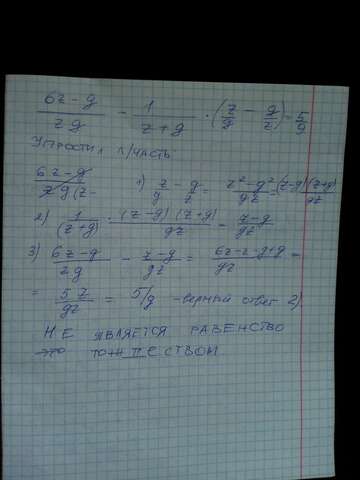 (6z-g)/(zg) - 1/(z+g) · (z/g - g/z) = 5/g
УПРОСТИ Л/ЧАСТЬ
6z-g/zg(z- 1) z/g - g/z = (z²-g²)/(gz) = (z-g)(z+g)/(gz)
2) 1/(z+g) · (z-g)(z+g)/(gz) = (z-g)/(gz)
3) (6z-g)/(zg) - (z-g)/(gz) = (6z-z-g+g)/(gz) =
= 5z/(gz) = 5/g - верный ответ 2).
НЕ ЯВЛЯЕТСЯ РАВЕНСТВО
ТОЖДЕСТВОМ